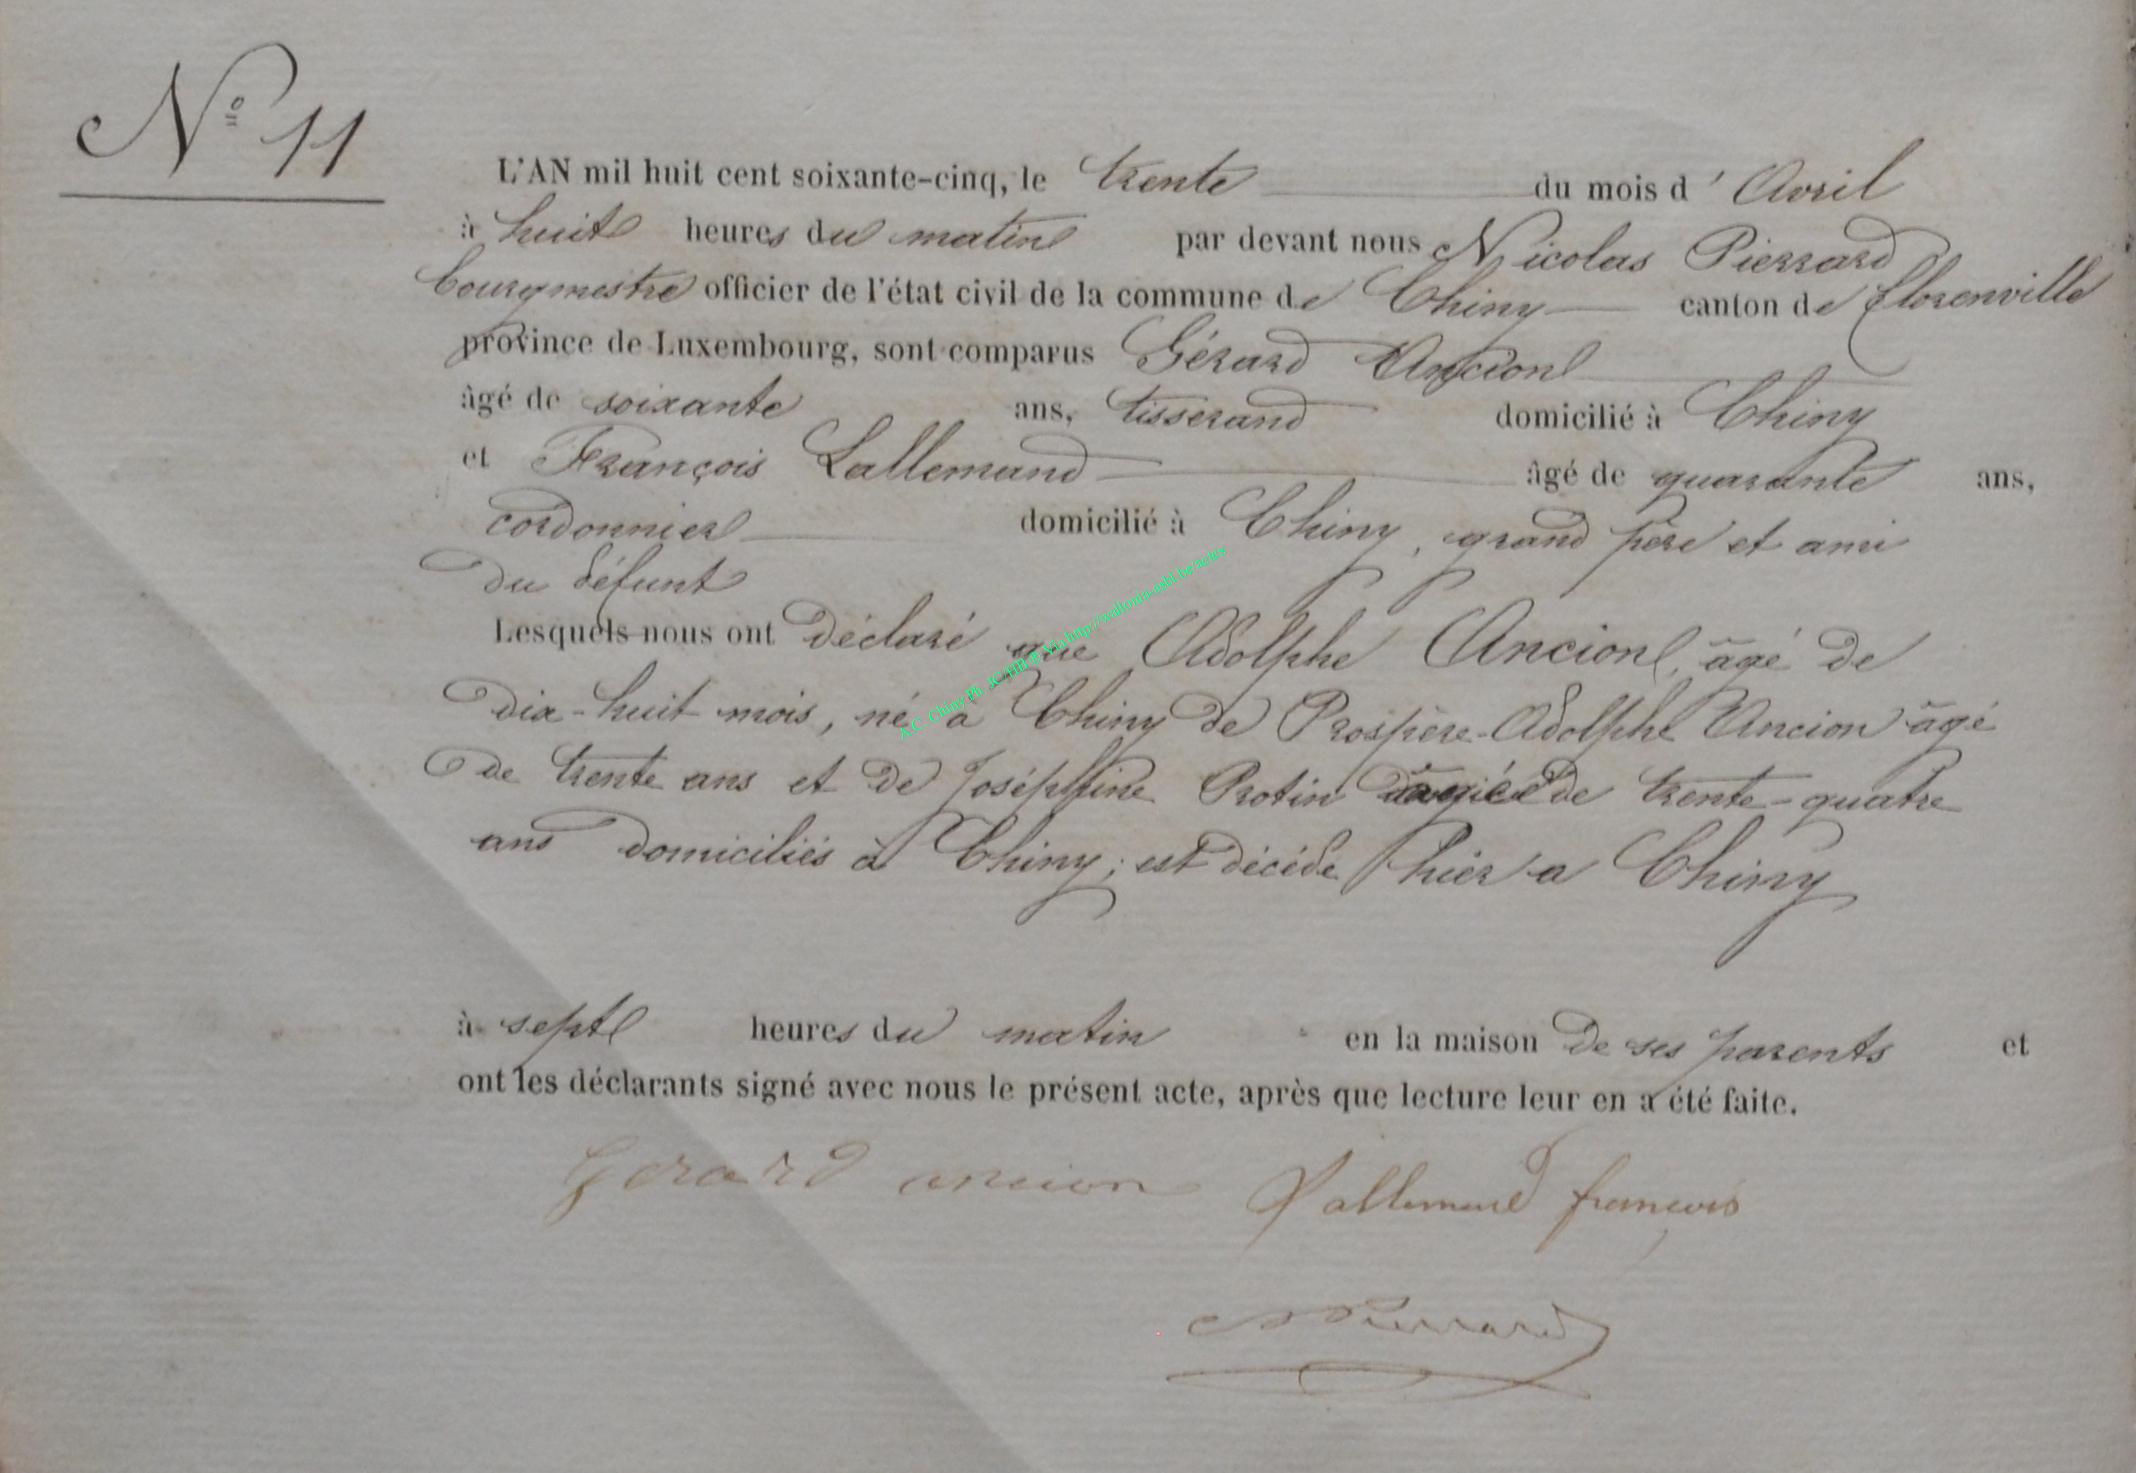 Nº 11
L'AN mil huit cent soixante-cinq, le trente du mois d'Avril
à huit heures du matin par devant nous Nicolas Pierrard
bourgmestre officier de l'état civil de la commune de Chiny canton de florenville
province de Luxembourg, sont comparus Gérard Ancion
âgé de soixante ans, tisserand domicilié à Chiny
et François Lallemand âgé de quarante ans,
cordonnier domicilié à Chiny, grand père et ami
du défunt
Lesquels nous ont déclaré que Adolphe Ancion, âgé de
dix-huit mois, né à Chiny de Prospère-Adolphe Ancion âgé
de trente ans et de Joséphine Protin âgée de trente-quatre
ans domiciliés à Chiny; est décédé hier a Chiny
à sept heures du matin en la maison de ses parents et
ont les déclarants signé avec nous le présent acte, après que lecture leur en a été faite.
Gerard ancion Lallemand françois
NPierrard
A.C. Chiny Ph. JC HB © Via http://wallonia-asbl.be/actes